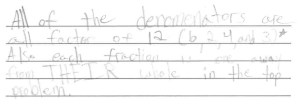 All of the denominators are
all factor of 12 (6, 2, 4, and 3)*
Also each fraction is one away
from THEIR whole in the top
problem.